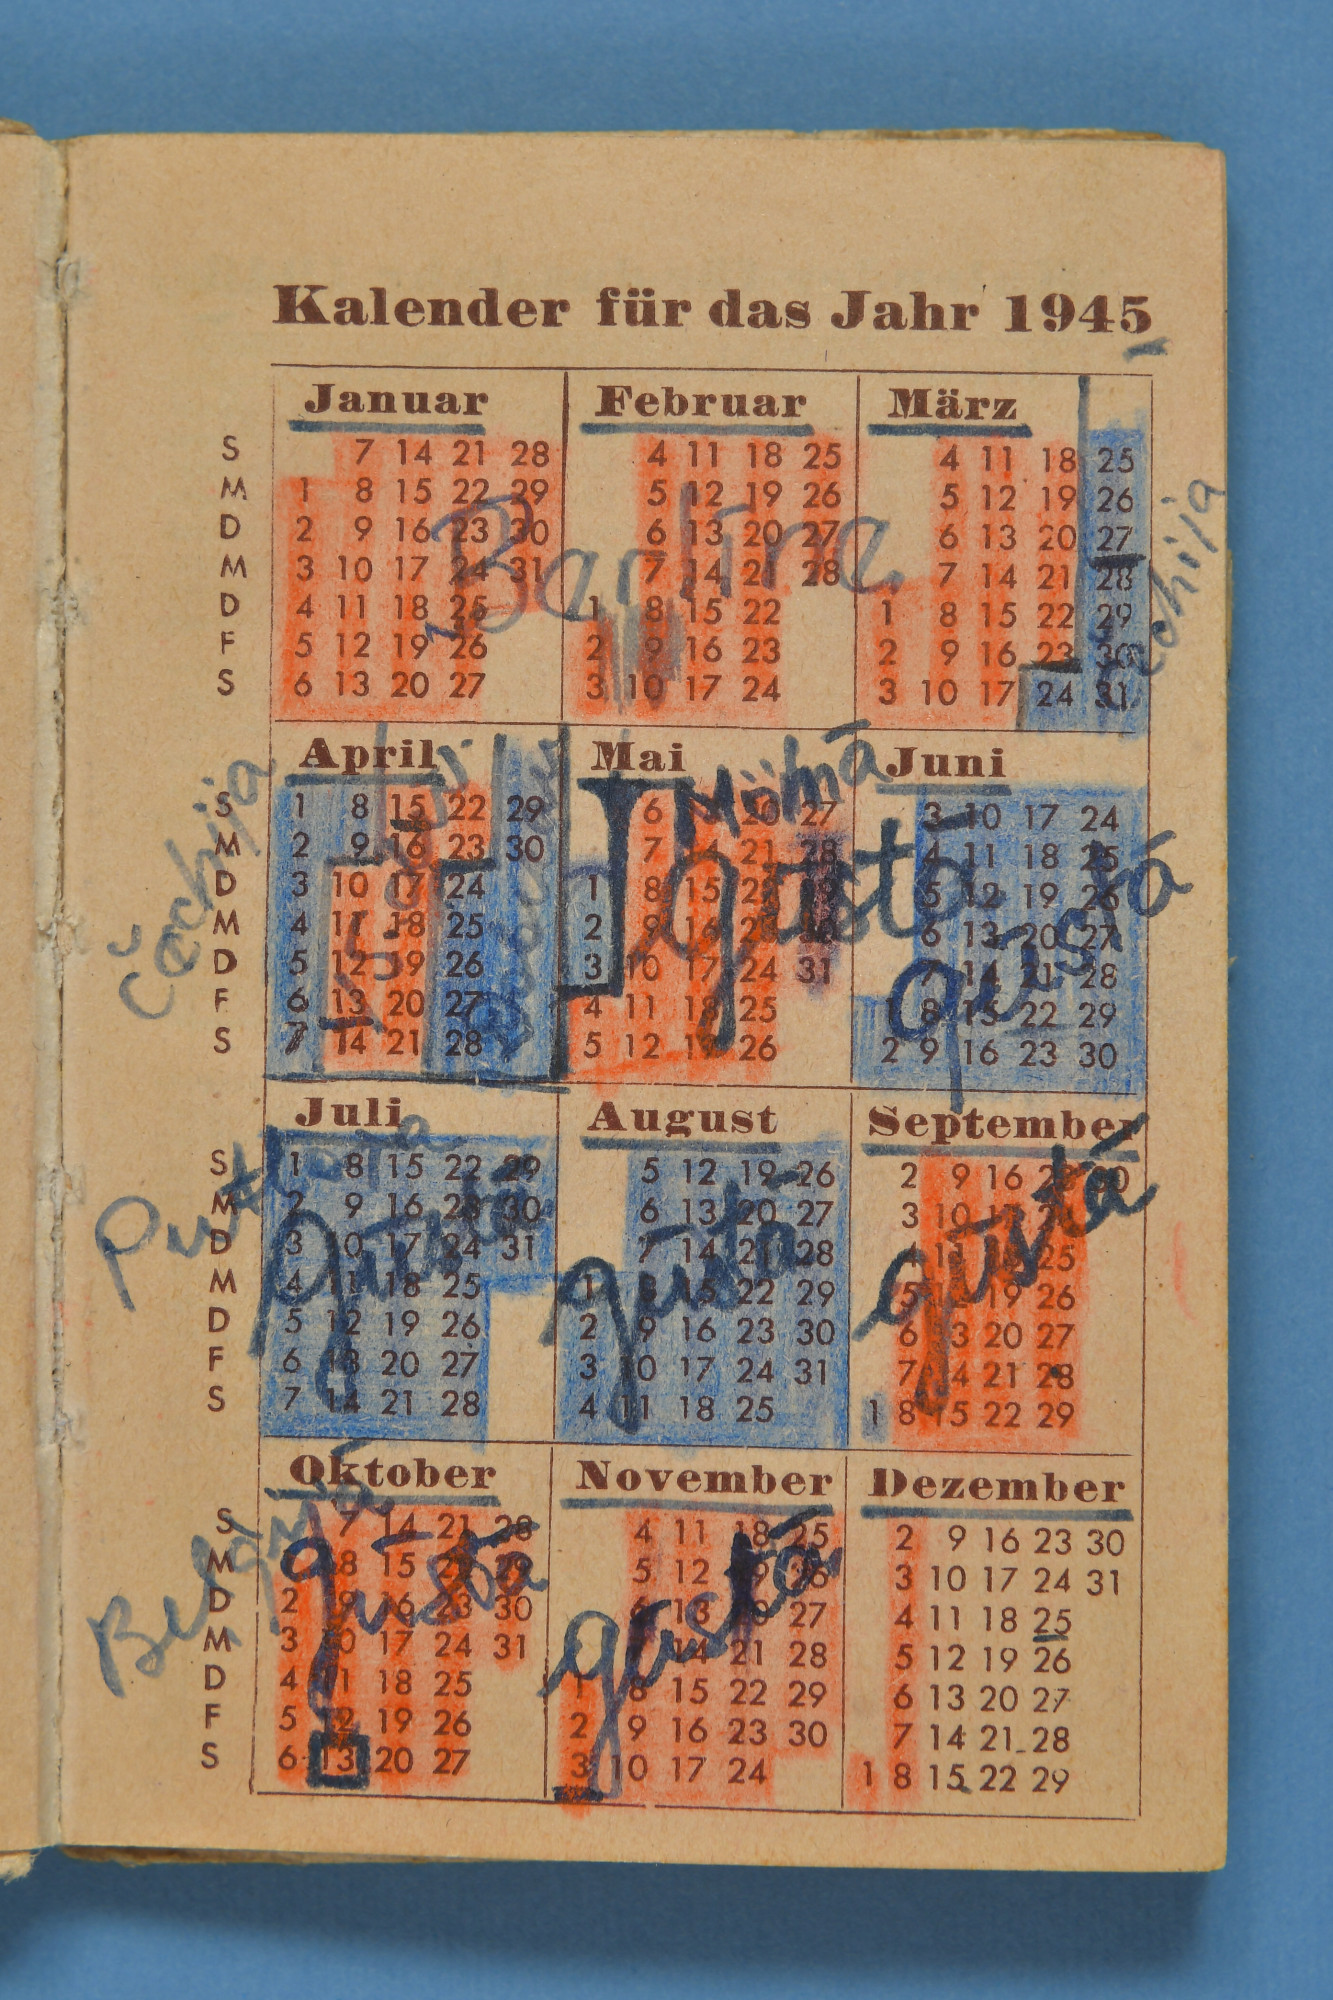 Kalender für das Jahr 1945
Januar Februar März
S 7 14 21 28 4 11 18 25 4 11 18 25
M 1 8 15 22 29 5 12 19 26 5 12 19 26
D 2 9 16 23 30 6 13 20 27 6 13 20 27
M 3 10 17 24 31 7 14 21 28 7 14 21 28
D 4 11 18 25 1 8 15 22 1 8 15 22 29
F 5 12 19 26 2 9 16 23 2 9 16 23 30
S 6 13 20 27 3 10 17 24 3 10 17 24 31
Berline
čechija
April Mai Juni
S 1 8 15 22 29 6 20 27 3 10 17 24
M 2 9 16 23 30 7 14 21 28 4 11 18 25
D 3 10 17 24 1 8 15 22 29 5 12 19 26
M 4 11 18 25 2 9 16 23 30 6 13 20 27
D 5 12 19 26 3 10 17 24 31 7 14 21 28
F 6 13 20 27 4 11 18 25 1 8 15 22 29
S 7 14 21 28 5 12 19 26 2 9 16 23 30
čechija
gūstā
gūstā
Juli August September
S 1 8 15 22 29 5 12 19 26 2 9 16 23 30
M 2 9 16 23 30 6 13 20 27 3 10 17 24
D 3 10 17 24 31 7 14 21 28 4 11 18 25
M 4 11 18 25 1 8 15 22 29 5 12 19 26
D 5 12 19 26 2 9 16 23 30 6 13 20 27
F 6 13 20 27 3 10 17 24 31 7 14 21 28
S 7 14 21 28 4 11 18 25 1 8 15 22 29
gūstā
gūstā
gūstā
Oktober November Dezember
S 7 14 21 28 4 11 18 25 2 9 16 23 30
M 1 8 15 22 29 5 12 19 26 3 10 17 24 31
D 2 9 16 23 30 6 13 20 27 4 11 18 25
M 3 10 17 24 31 7 14 21 28 5 12 19 26
D 4 11 18 25 1 8 15 22 29 6 13 20 27
F 5 12 19 26 2 9 16 23 30 7 14 21 28
S 6 13 20 27 3 10 17 24 1 8 15 22 29
Beļģijā
gūstā
gūstā